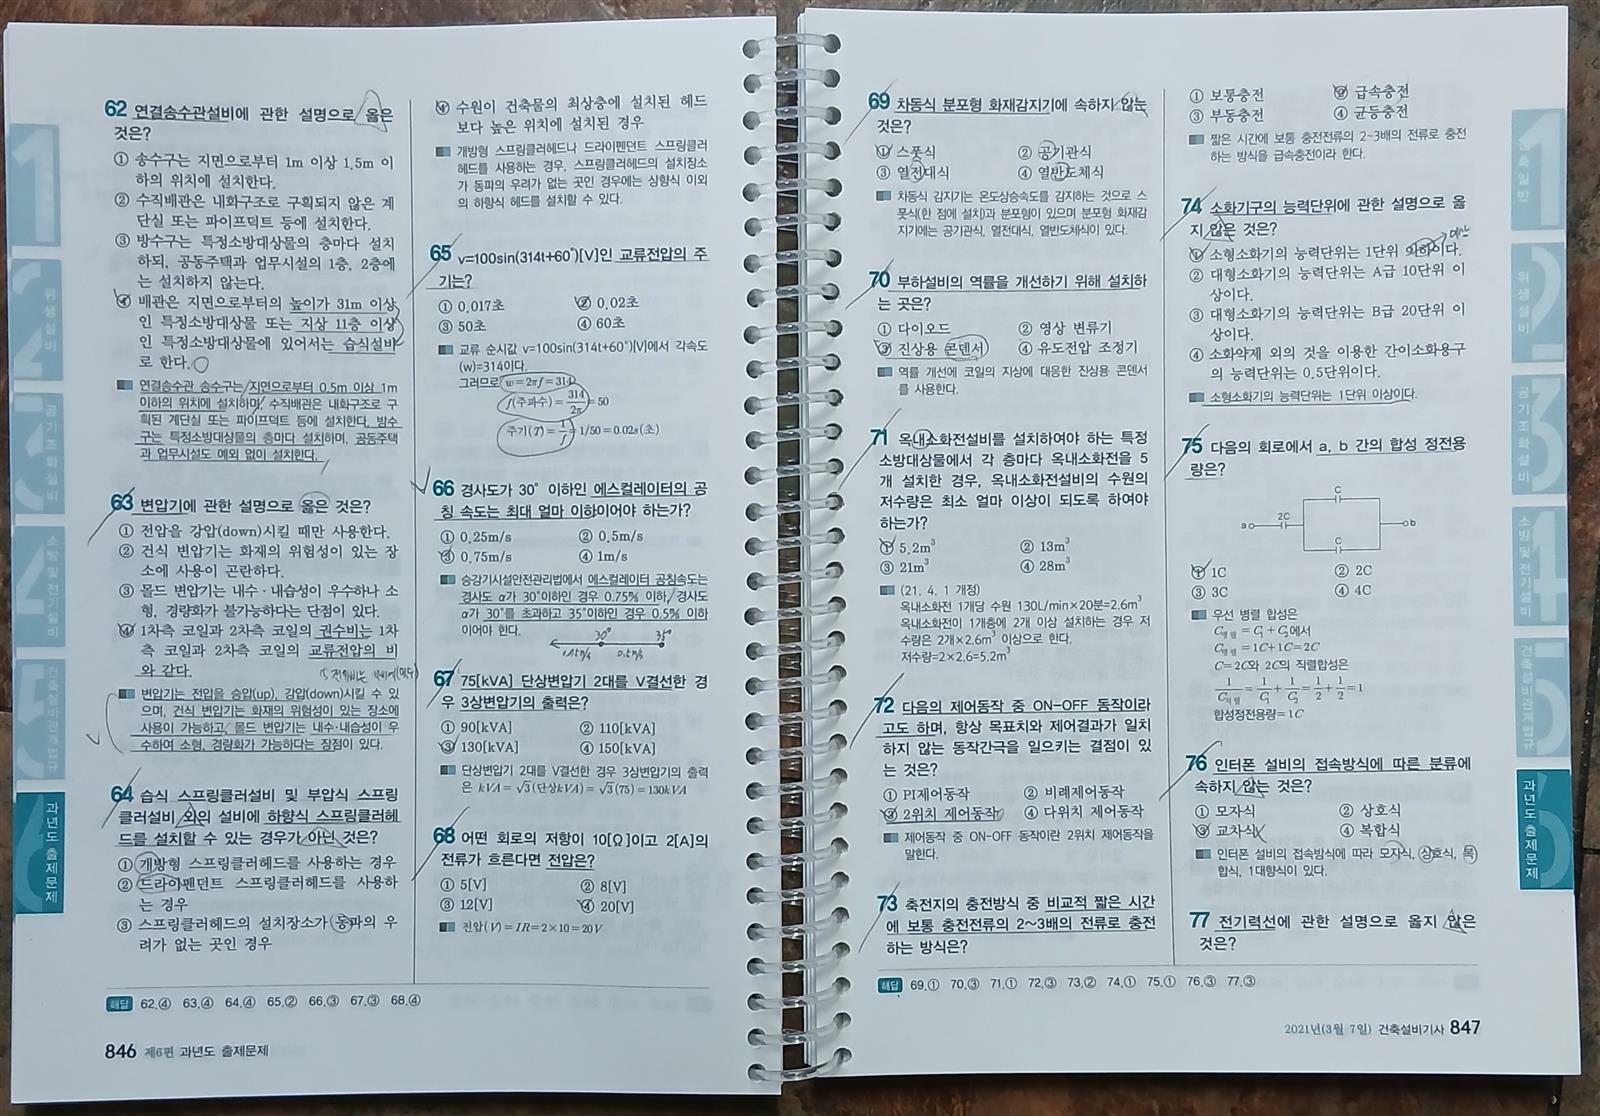 62 연결송수관설비에 관한 설명으로 옳은
것은?
① 송수구는 지면으로부터 1m 이상 1.5m 이
하의 위치에 설치한다.
② 수직배관은 내화구조로 구획되지 않은 계
단실 또는 파이프덕트 등에 설치한다.
③ 방수구는 특정소방대상물의 층마다 설치
하되, 공동주택과 업무시설의 1층, 2층에
는 설치하지 않는다.
④ 배관은 지면으로부터의 높이가 31m 이상
인 특정소방대상물 또는 지상 11층 이상
인 특정소방대상물에 있어서는 습식설비
로 한다.
연결송수관 송수구는 지면으로부터 0.5m 이상 1m
이하의 위치에 설치하며, 수직배관은 내화구조로 구
획된 계단실 또는 파이프덕트 등에 설치한다. 방수
구는 특정소방대상물의 층마다 설치하며, 공동주택
과 업무시설도 예외 없이 설치한다.
63 변압기에 관한 설명으로 옳은 것은?
① 전압을 강압(down)시킬 때만 사용한다.
② 건식 변압기는 화재의 위험성이 있는 장
소에 사용이 곤란하다.
③ 몰드 변압기는 내수·내습성이 우수하나 소
형, 경량화가 불가능하다는 단점이 있다.
④ 1차측 코일과 2차측 코일의 권수비는 1차
측 코일과 2차측 코일의 교류전압의 비
와 같다.
변압기는 전압을 승압(up), 강압(down)시킬 수 있
으며, 건식 변압기는 화재의 위험성이 있는 장소에
사용이 가능하고, 몰드 변압기는 내수·내습성이 우
수하여 소형, 경량화가 가능하다는 장점이 있다.
64 습식 스프링클러설비 및 부압식 스프링
클러설비 외의 설비에 하향식 스프링클러헤
드를 설치할 수 있는 경우가 아닌 것은?
① 개방형 스프링클러헤드를 사용하는 경우
② 드라이펜던트 스프링클러헤드를 사용하
는 경우
③ 스프링클러헤드의 설치장소가 동파의 우
려가 없는 곳인 경우
④ 수원이 건축물의 최상층에 설치된 헤드
보다 높은 위치에 설치된 경우
개방형 스프링클러헤드나 드라이펜던트 스프링클러
헤드를 사용하는 경우, 스프링클러헤드의 설치장소
가 동파의 우려가 없는 곳인 경우에는 상향식 이외
의 하향식 헤드를 설치할 수 있다.
65 v=100sin(314t+60°)[V]인 교류전압의 주
기는?
① 0.017초 ② 0.02초
③ 50초 ④ 60초
교류 순시값 v=100sin(314t+60°)[V]에서 각속도
(w)=314이다.
그러므로 w=2πf=314
f(주파수)=314/2π=50
주기(T)=1/f=1/50=0.02s(초)
66 경사도가 30° 이하인 에스컬레이터의 공
칭 속도는 최대 얼마 이하이어야 하는가?
① 0.25m/s ② 0.5m/s
③ 0.75m/s ④ 1m/s
승강기시설안전관리법에서 에스컬레이터 공칭속도는
경사도 α가 30°이하인 경우 0.75% 이하, 경사도
α가 30°를 초과하고 35°이하인 경우 0.5% 이하
이어야 한다.
30° 35°
0.5m/s
67 75[kVA] 단상변압기 2대를 V결선한 경
우 3상변압기의 출력은?
① 90[kVA] ② 110[kVA]
③ 130[kVA] ④ 150[kVA]
단상변압기 2대를 V결선한 경우 3상변압기의 출력
은 kVA=√3(단상kVA)=√3(75)=130kVA
68 어떤 회로의 저항이 10[Ω]이고 2[A]의
전류가 흐른다면 전압은?
① 5[V] ② 8[V]
③ 12[V] ④ 20[V]
전압(V)=IR=2×10=20V
해답 62.④ 63.④ 64.④ 65.② 66.③ 67.③ 68.④
846 제6편 과년도 출제문제
69 차동식 분포형 화재감지기에 속하지 않는
것은?
① 스폿식 ② 공기관식
③ 열전대식 ④ 열반도체식
차동식 감지기는 온도상승속도를 감지하는 것으로 스
폿식(한 점에 설치)과 분포형이 있으며 분포형 화재감
지기에는 공기관식, 열전대식, 열반도체식이 있다.
70 부하설비의 역률을 개선하기 위해 설치하
는 곳은?
① 다이오드 ② 영상 변류기
③ 진상용 콘덴서 ④ 유도전압 조정기
역률 개선에 코일의 지상에 대응한 진상용 콘덴서
를 사용한다.
71 옥내소화전설비를 설치하여야 하는 특정
소방대상물에서 각 층마다 옥내소화전을 5
개 설치한 경우, 옥내소화전설비의 수원의
저수량은 최소 얼마 이상이 되도록 하여야
하는가?
① 5.2m³ ② 13m³
③ 21m³ ④ 28m³
(21. 4. 1 개정)
옥내소화전 1개당 수원 130L/min×20분=2.6m³
옥내소화전이 1개층에 2개 이상 설치하는 경우 저
수량은 2개×2.6m³ 이상으로 한다.
저수량=2×2.6=5.2m³
72 다음의 제어동작 중 ON-OFF 동작이라
고도 하며, 항상 목표치와 제어결과가 일치
하지 않는 동작간극을 일으키는 결점이 있
는 것은?
① PI제어동작 ② 비례제어동작
③ 2위치 제어동작 ④ 다위치 제어동작
제어동작 중 ON-OFF 동작이란 2위치 제어동작을
말한다.
73 축전지의 충전방식 중 비교적 짧은 시간
에 보통 충전전류의 2~3배의 전류로 충전
하는 방식은?
① 보통충전 ② 급속충전
③ 부동충전 ④ 균등충전
짧은 시간에 보통 충전전류의 2~3배의 전류로 충전
하는 방식을 급속충전이라 한다.
74 소화기구의 능력단위에 관한 설명으로 옳
지 않은 것은?
이상
① 소형소화기의 능력단위는 1단위 이하이다.
② 대형소화기의 능력단위는 A급 10단위 이
상이다.
③ 대형소화기의 능력단위는 B급 20단위 이
상이다.
④ 소화약제 외의 것을 이용한 간이소화용구
의 능력단위는 0.5단위이다.
소형소화기의 능력단위는 1단위 이상이다.
75 다음의 회로에서 a, b 간의 합성 정전용
량은?
C
2C
a b
C
① 1C ② 2C
③ 3C ④ 4C
우선 병렬 합성은
C병렬=C₁+C₂에서
C병렬=1C+1C=2C
C=2C와 2C의 직렬합성은
1/C직렬=1/C₁+1/C₂=1/2+1/2=1
합성정전용량=1C
76 인터폰 설비의 접속방식에 따른 분류에
속하지 않는 것은?
① 모자식 ② 상호식
③ 교차식 ④ 복합식
인터폰 설비의 접속방식에 따라 모자식, 상호식, 복
합식, 1대향식이 있다.
77 전기력선에 관한 설명으로 옳지 않은
것은?
해답 69.① 70.③ 71.① 72.③ 73.② 74.① 75.① 76.③ 77.③
2021년(3월 7일) 건축설비기사 847
1
2 위생설비
3 공기조화설비
4 소방 및 전기설비
5 건축설비관계법규
6 과년도 출제문제
1 건축일반
2 위생설비
3 공기조화설비
4 소방 및 전기설비
5 건축설비관계법규
6 과년도 출제문제